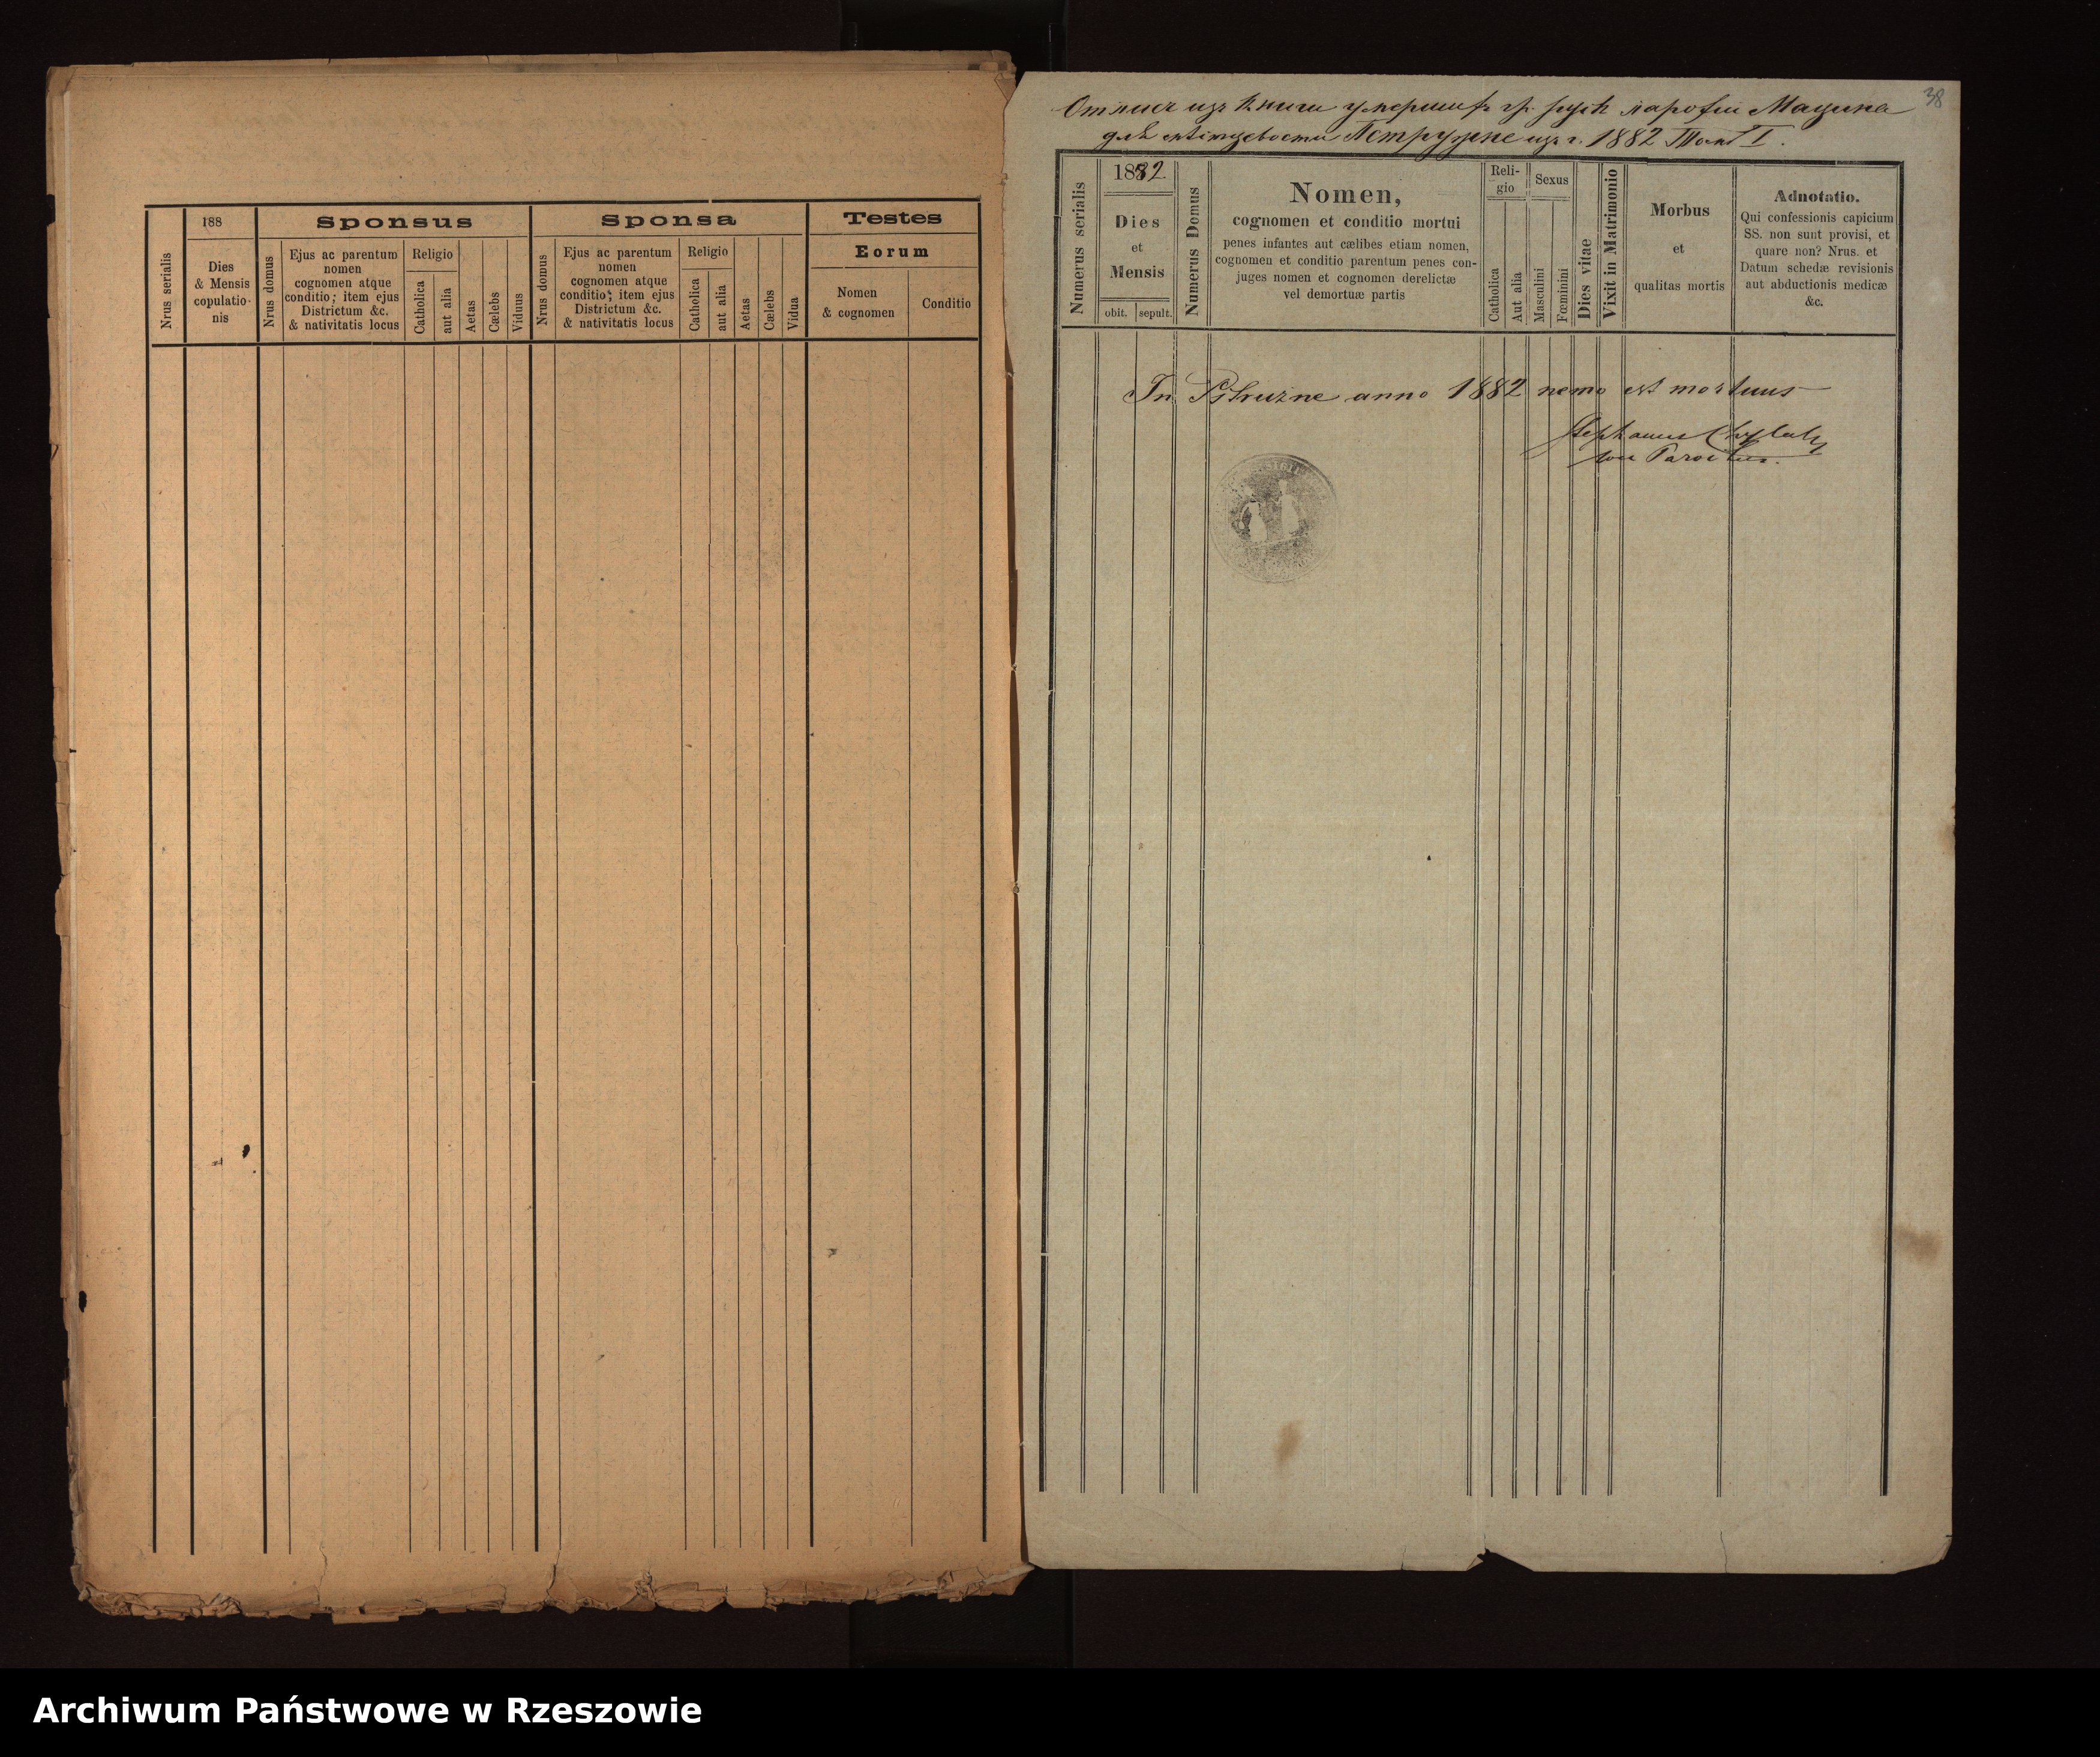 188
Sponsus
Sponsa
Testes
Nrus serialis
Dies
& Mensis
copulatio-
nis
Nrus domus
Ejus ac parentum
nomen
cognomen atque
conditio; item ejus
Districtum &c.
& nativitatis locus
Religio
Catholica
aut alia
Aetas
Cælebs
Viduus
Nrus domus
Ejus ac parentum
nomen
cognomen atque
conditio; item ejus
Districtum &c.
& nativitatis locus
Religio
Catholica
aut alia
Aetas
Cælebs
Vidua
Eorum
Nomen
& cognomen
Conditio
38
Отпись изъ книги умершихъ гр. руск парохіи Мацина
для 1882 Томъ I.
Numerus serialis
1882.
Dies
et
Mensis
obit.
sepult.
Numerus Domus
Nomen,
cognomen et conditio mortui
penes infantes aut cælibes etiam nomen,
cognomen et conditio parentum penes con-
juges nomen et cognomen derelictæ
vel demortuæ partis
Reli-
gio
Catholica
Aut alia
Sexus
Masculini
Fœminini
Dies vitae
Vixit in Matrimonio
Morbus
et
qualitas mortis
Adnotatio.
Qui confessionis capicium
SS. non sunt provisi, et
quare non? Nrus. et
Datum schedæ revisionis
aut abductionis medicæ
&c.
In Pstruzne anno 1882 nemo est mortuus
Stephanus
Parochus.
Archiwum Państwowe w Rzeszowie